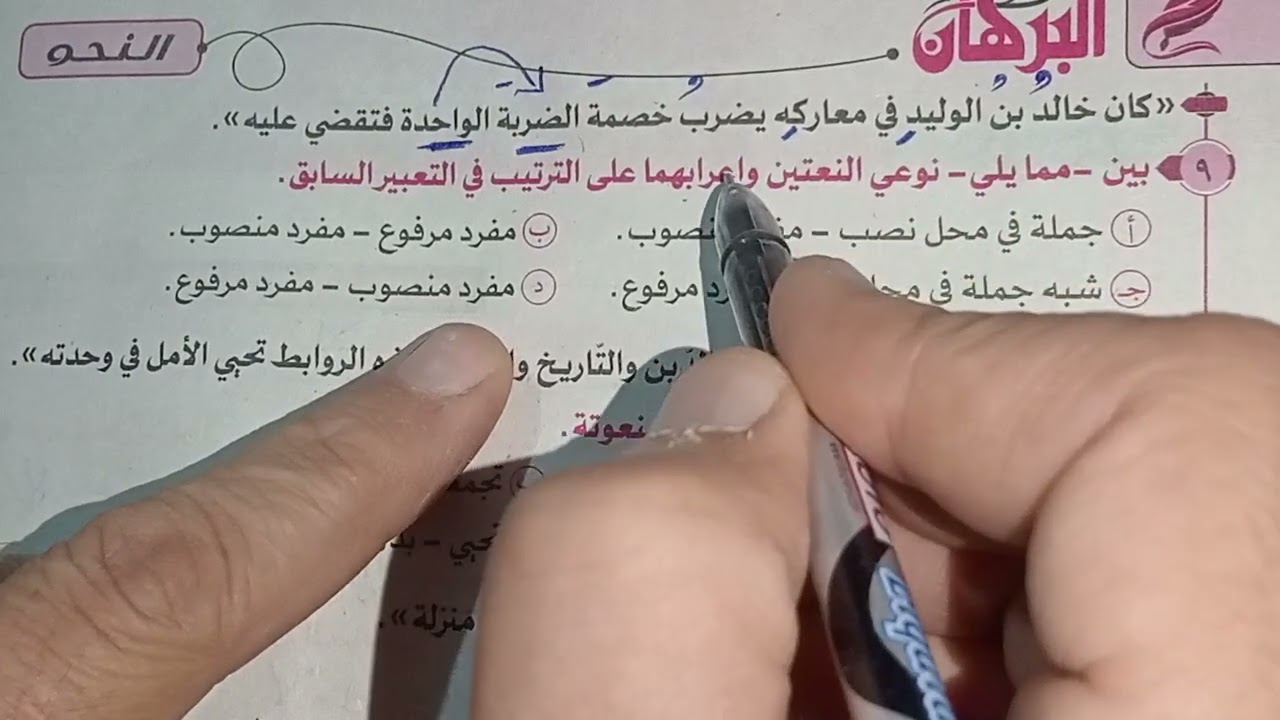 البرهان
النحو
«كان خالدُ بنُ الوليدِ في معاركِه يضربُ خَصمة الضربة الواحدة فتقضي عليه».
٩ بين -مما يلي- نوعي النعتين وإعرابهما على الترتيب في التعبير السابق.
أ جملة في محل نصب - منصوب.
ب مفرد مرفوع - مفرد منصوب.
جـ شبه جملة في مرفوع.
د مفرد منصوب - مفرد مرفوع.
والتّاريخ الروابط تحيي الأمل في وحدته».
منزلة».